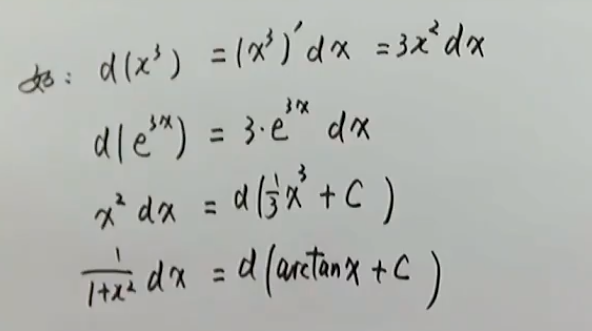 如: d(x³) = (x³)′dx = 3x²dx
d(e³ˣ) = 3·e³ˣ dx
x² dx = d(⅓x³ + C)
1/(1+x²) dx = d(arctanx + C)